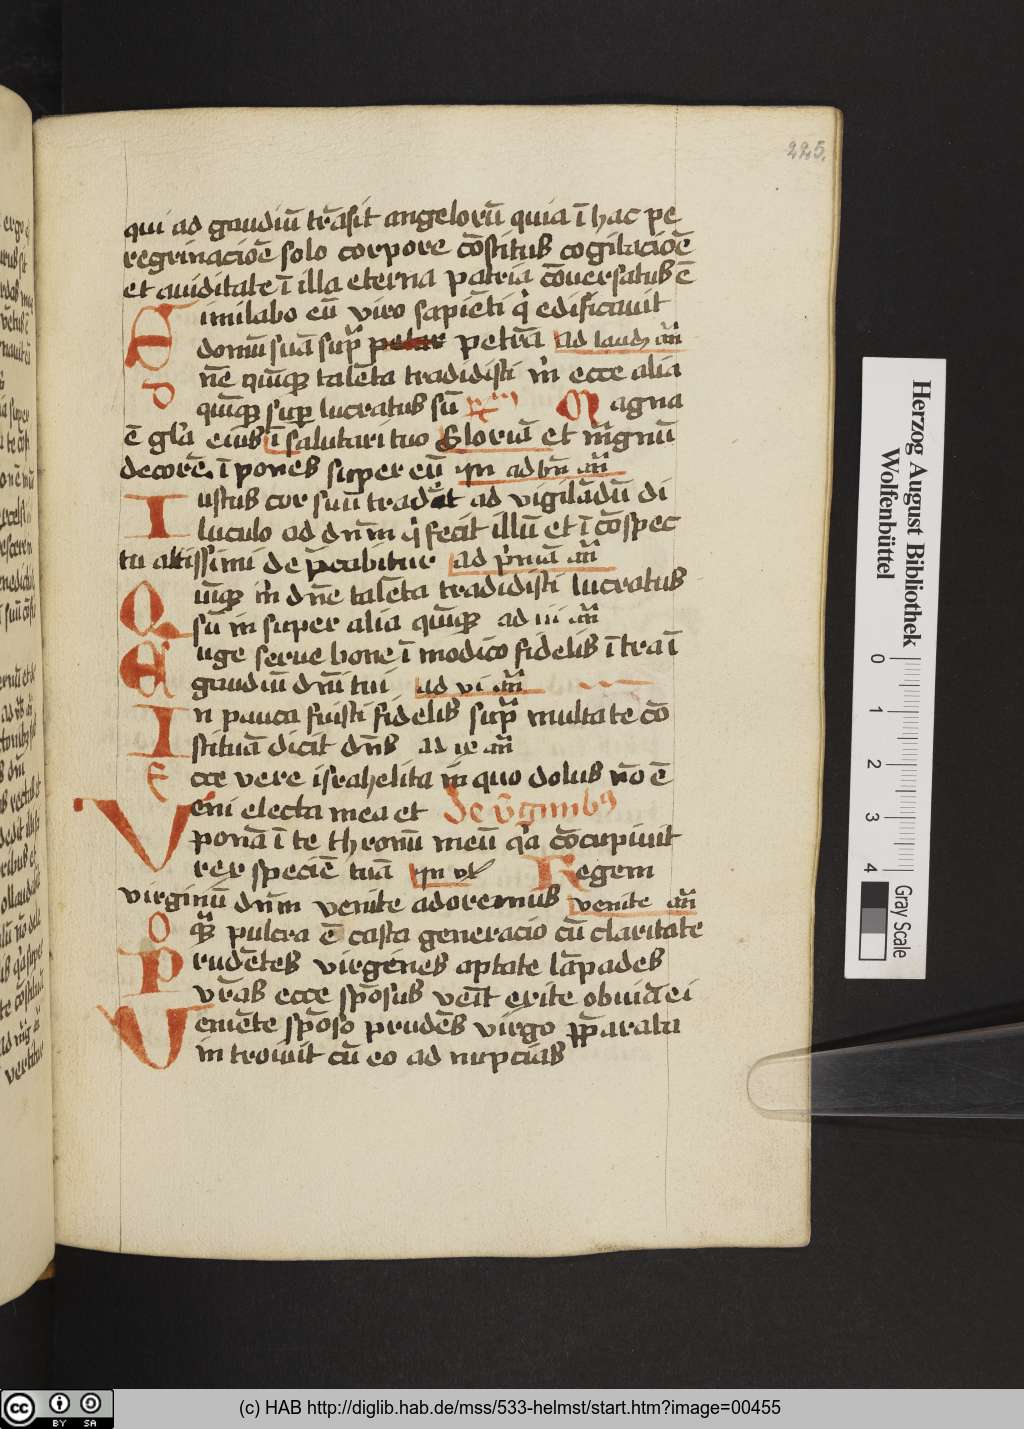 225.
qui ad gaudiū trāsit angelorū quia ī hac pe
regrinacioē solo corpore cōstitus cogitacioē
et auiditate ī illa eterna patria cōuersatus ē
Similabo eū viro sapiēti q̇ edificauit
domū suā sup̄ petrā ad laud an̄
Dn̄e quīqꝫ talēta tradidisti m̄ ecce alia
quīqꝫ suꝑ lucratus sū Magna
ē gl̄a eius ī salutari tuo Gloriā et magnū
decorē īpones super eū
Iustus cor suū tradit ad vigilādū di
luculo ad dn̄m q̇ fecit illū et ī cōspec
tu altissimi dep̄cabitur ad p̄mā an̄
Quīqꝫ m̄ dn̄e talēta tradidisti lucratus
sū in super alia quīqꝫ ad iii an̄
Euge serue bone ī modico fidelis ītra ī
gaudiū dn̄i tui ad vi an̄
In pauca fuisti fidelis sup̄ multa te cō
stituā dicit dn̄s ad ix an̄
Ecce vere israhelita in quo dolus nō ē
Veni electa mea et de v̄ginibꝰ
ponā ī te thronū meū q̇a cōcupiuit
rex speciē tuā Regem
virginū dn̄m venite adoremus venite an̄
O qꝫ pulcra ē casta generacio cū claritate
Prudētes virgines aptate lāpades
vr̄as ecce spōsus venit exite obuiā ei
Veniēte spōso prudēs virgo p̄parata
introiuit cū eo ad nupcias
Herzog August Bibliothek
Wolfenbüttel
0
1
2
3
4
Gray Scale
cc BY SA
(c) HAB http://diglib.hab.de/mss/533-helmst/start.htm?image=00455